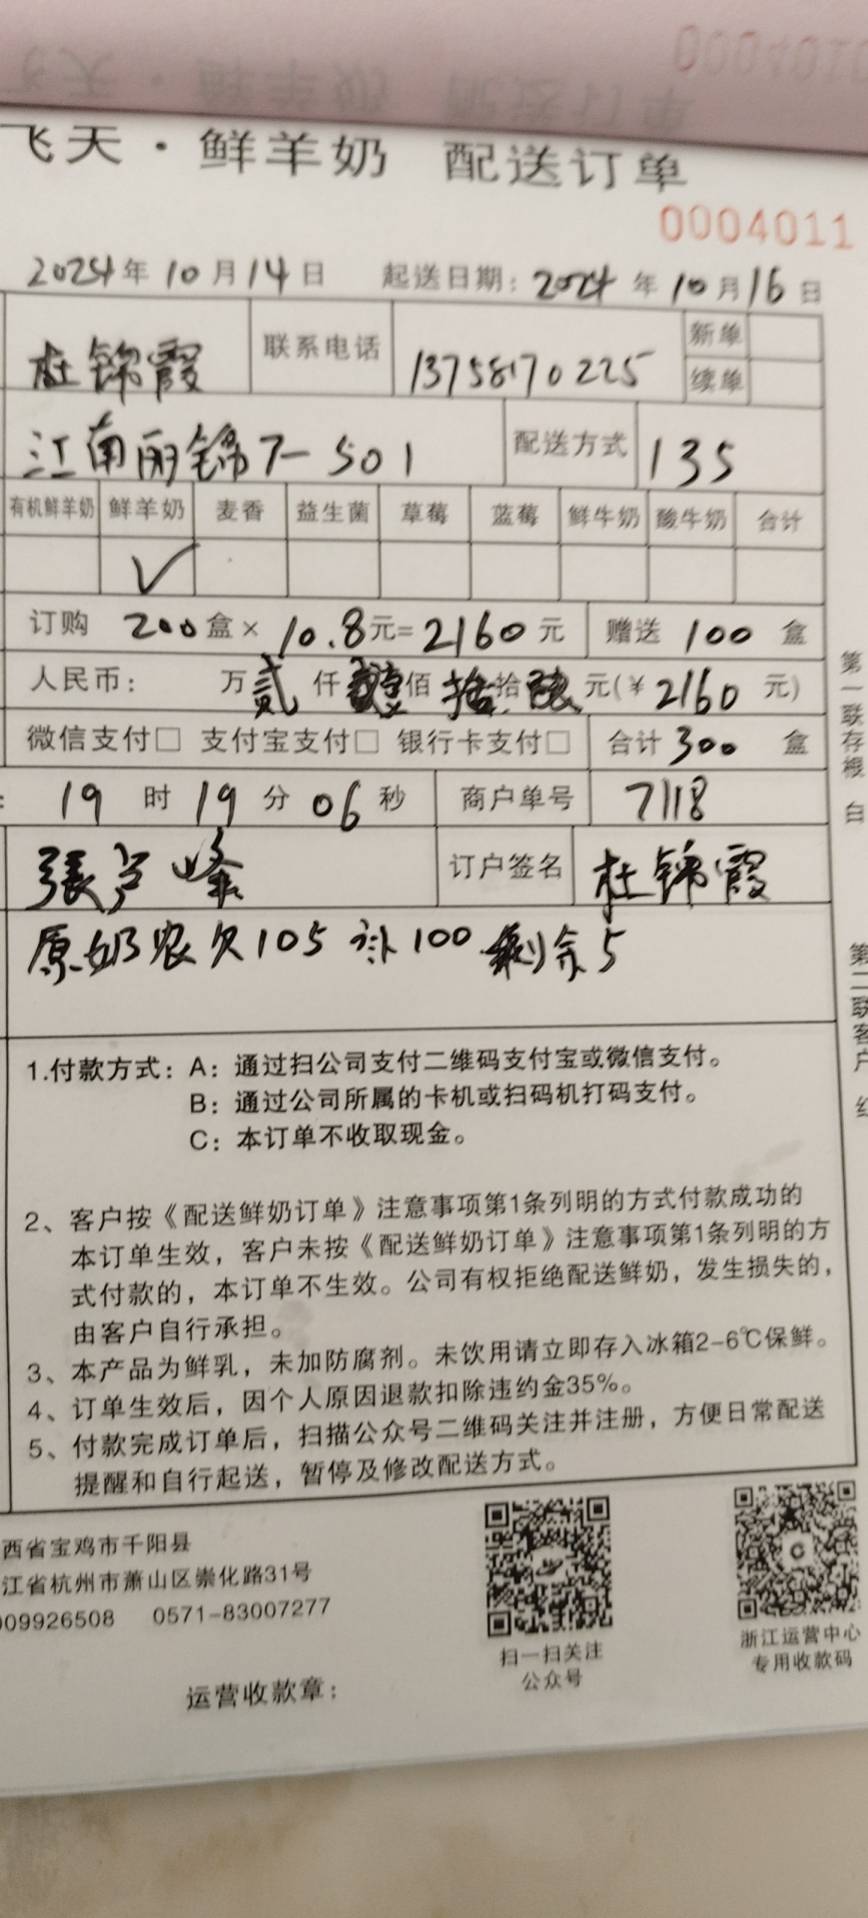 飞天·鲜羊奶 配送订单
0004011
2024年10月14日 起送日期：2024年10月16日
杜锦霞 联系电话 13758170225 新单
续单
江南丽锦7-501 配送方式 135
有机鲜羊奶 鲜羊奶 麦香 益生菌 草莓 蓝莓 鲜牛奶 酸牛奶 合计
✓
订购 200盒×10.8元=2160元 赠送 100 盒
人民币： 万贰仟 佰 拾 元(¥2160元)
微信支付□ 支付宝支付□ 银行卡支付□ 合计300 盒
: 19 时 19 分 06 秒 商户单号 7118
張芦峰 订户签名 杜锦霞
原奶农欠105 补100 剩余5
1.付款方式：A：通过扫公司支付二维码支付宝或微信支付。
B：通过公司所属的卡机或扫码机打码支付。
C：本订单不收取现金。
2、客户按《配送鲜奶订单》注意事项第1条列明的方式付款成功的
本订单生效，客户未按《配送鲜奶订单》注意事项第1条列明的方
式付款的，本订单不生效。公司有权拒绝配送鲜奶，发生损失的，
由客户自行承担。
3、本产品为鲜乳，未加防腐剂。未饮用请立即存入冰箱2-6℃保鲜。
4、订单生效后，因个人原因退款扣除违约金35%。
5、付款完成订单后，扫描公众号二维码关注并注册，方便日常配送
提醒和自行起送，暂停及修改配送方式。
西省宝鸡市千阳县
江省杭州市萧山区崇化路31号
009926508 0571-83007277
扫一扫关注
公众号
浙江运营中心
专用收款码
运营收款章：
第一联存根 白
第二联客户 红